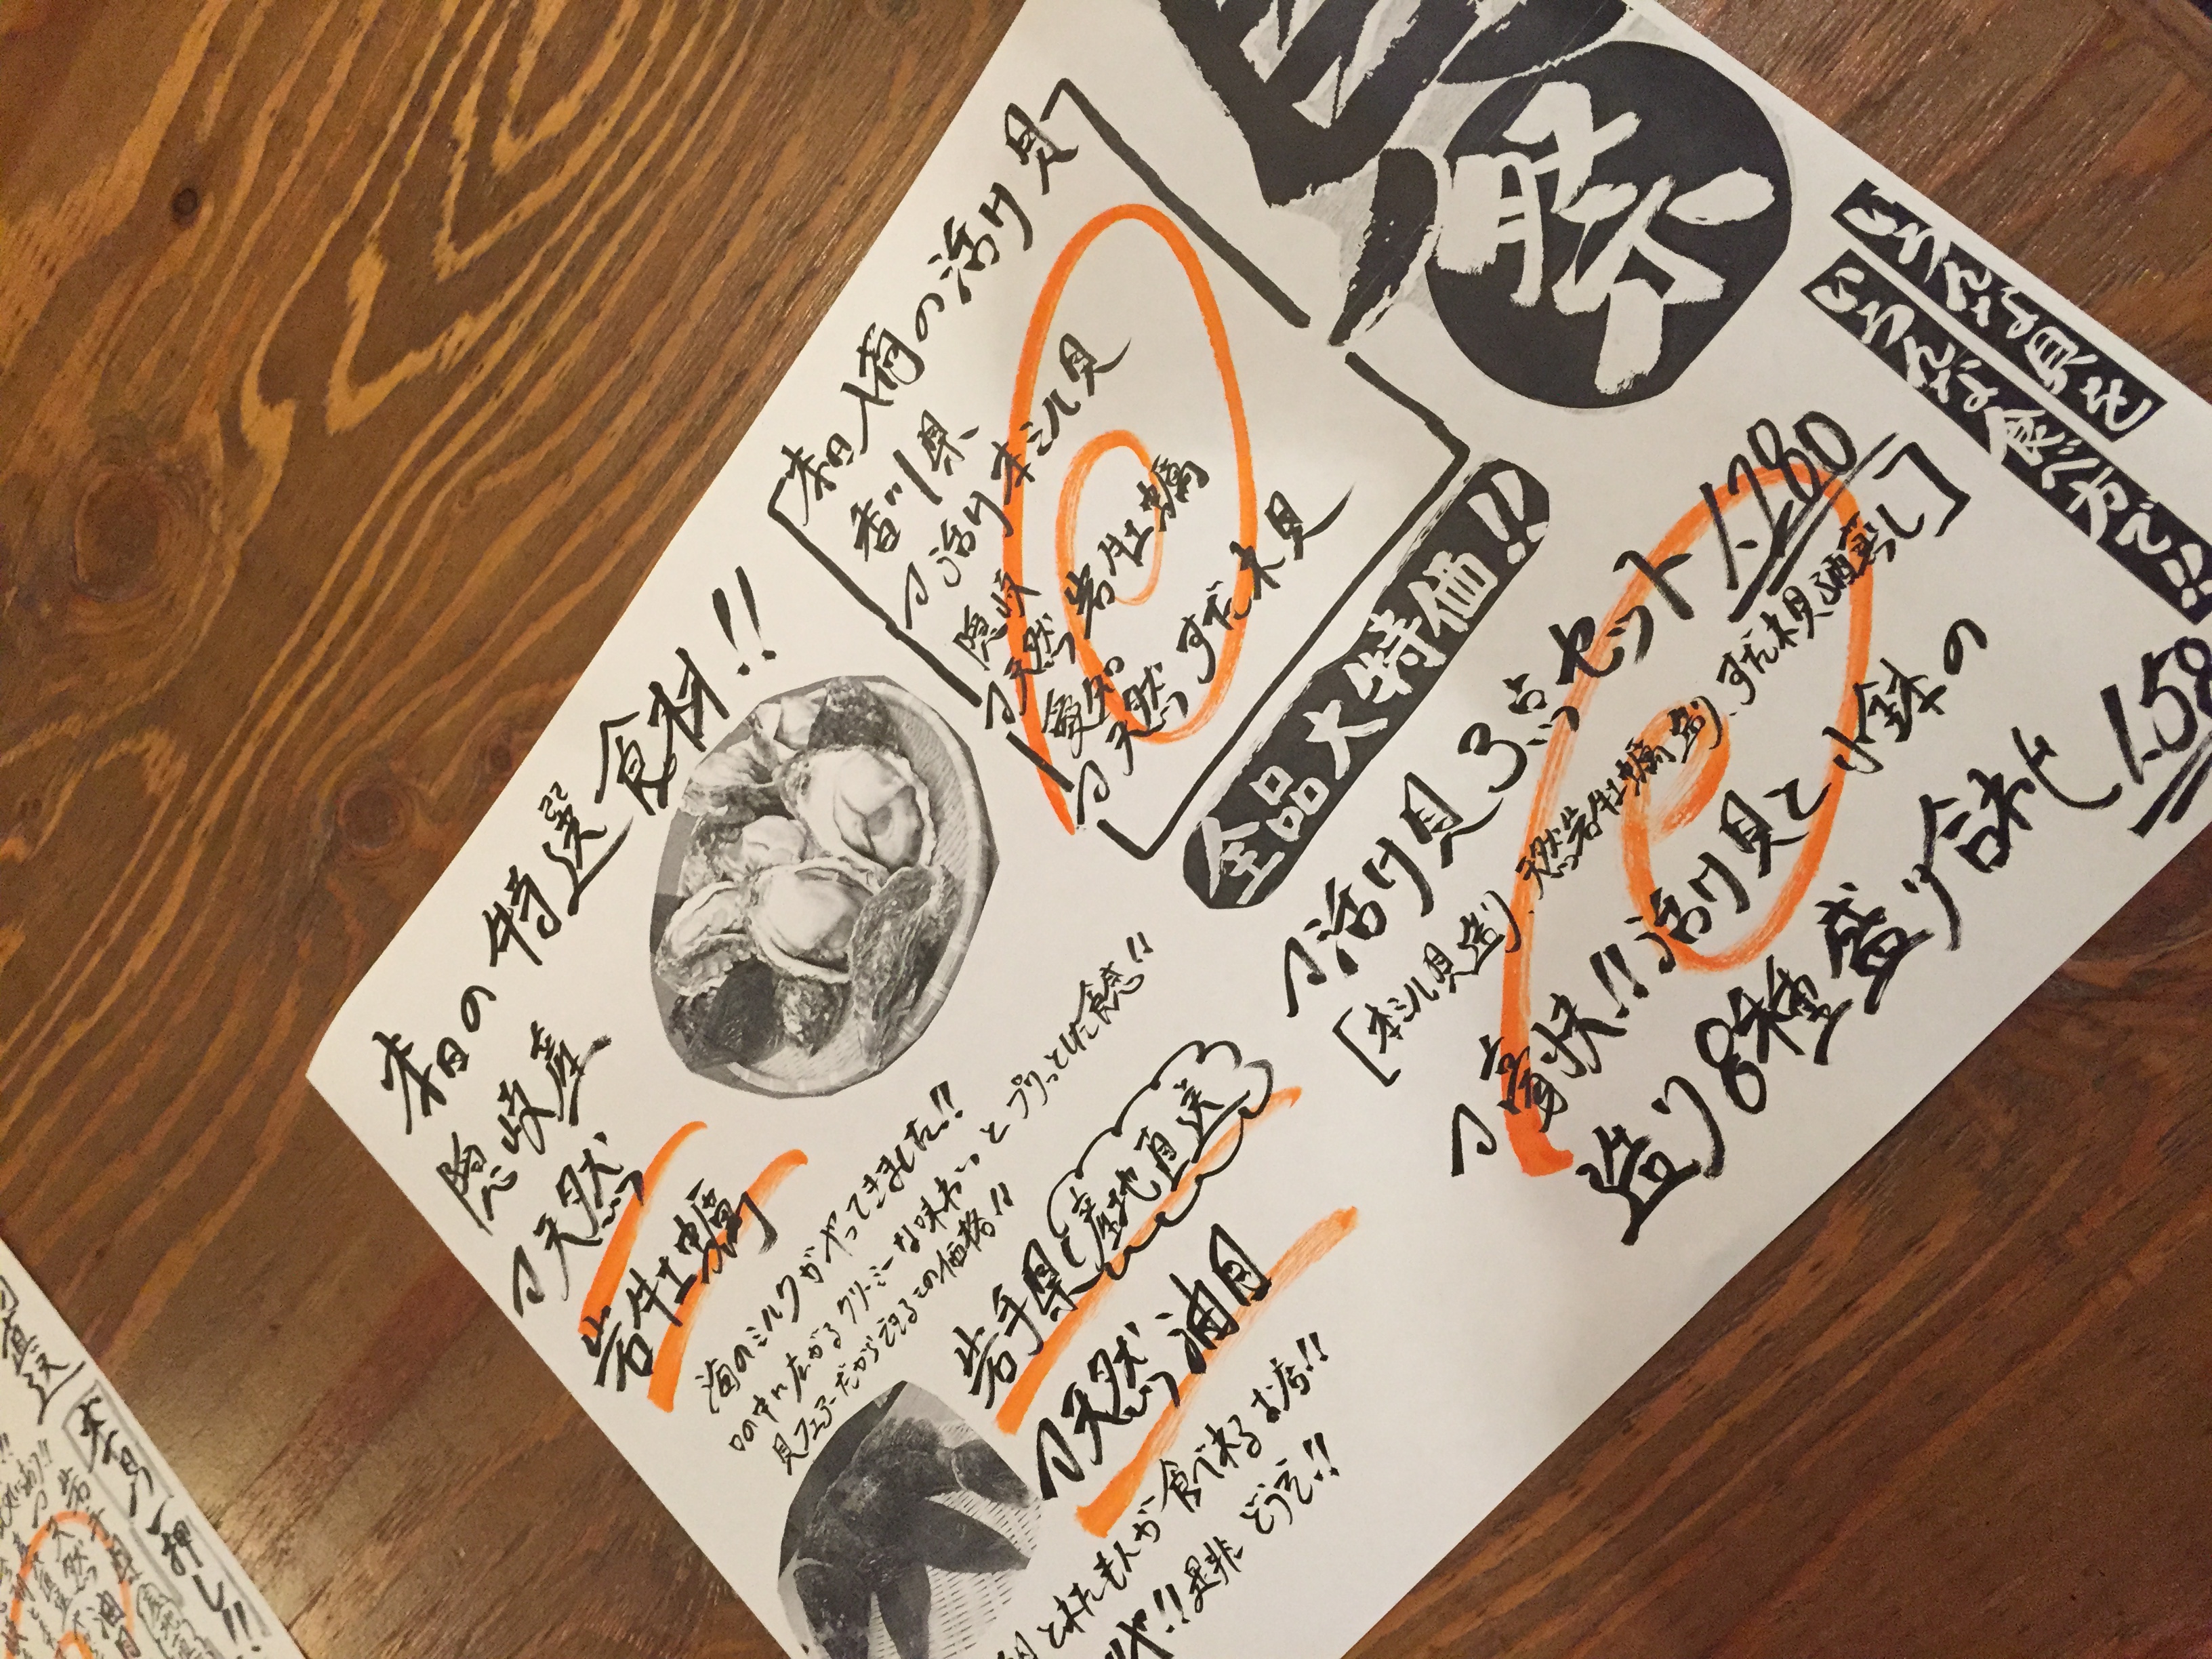 貝
祭
いろんな貝を
いろんな食べ方で!!
本日入荷の活け貝
香川県
活け本ミル貝
隠岐
天然岩牡蠣
愛知
天然すだれ貝
全品大特価!!
活け貝3点セット 1,280
[本ミル貝造り、天然岩牡蠣造り、すだれ貝酒蒸し]
豪快!!活け貝と小鉢の
造り8種盛り合わせ
本日の特選食材!!
隠岐産
天然
岩牡蠣
海のミルクがやってきました!!
口の中に広がるクリーミーな味わいとプリっとした食感!!
貝フェアーだからできるこの価格!!
岩手県
産地直送
天然油目
とれたもんが食べれるお店!!
是非どうぞ!!
直送
本日一押し!!
岩手県
天然油目